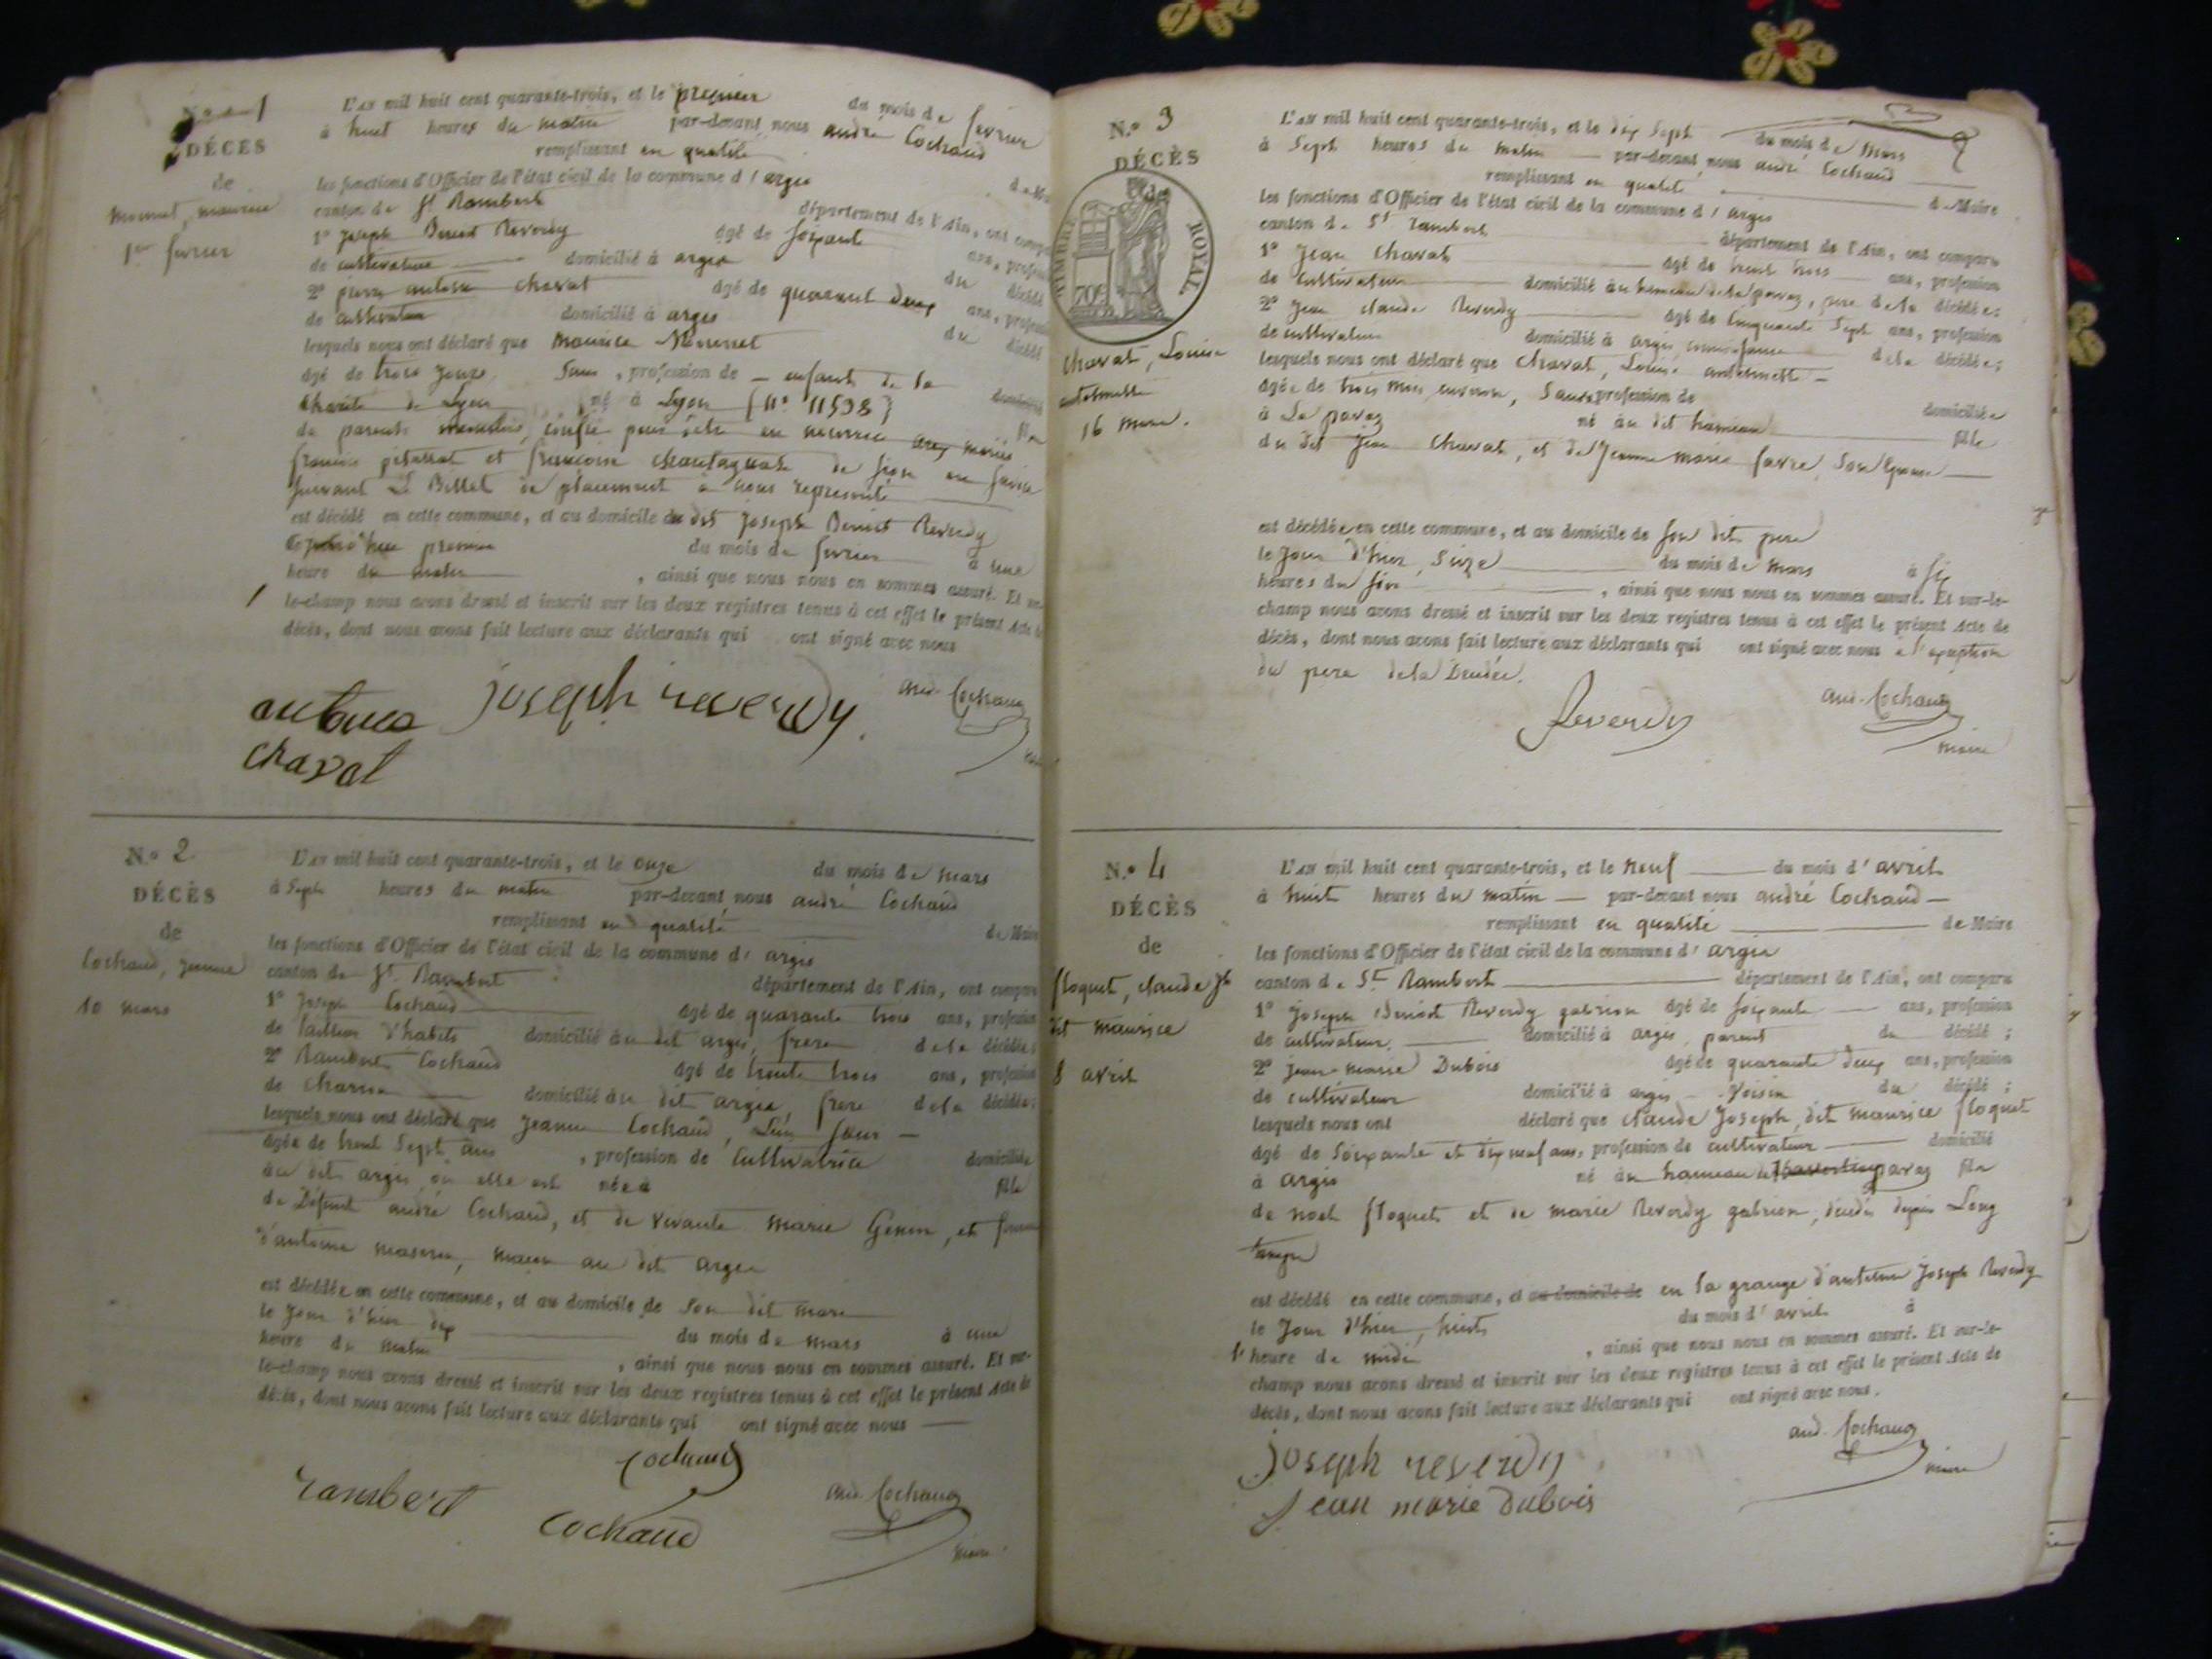 N.º 1
DÉCÈS
de
monnet, maurice
1er fevrier
L'an mil huit cent quarante-trois, et le premier du mois de fevrier
à huit heures du matin par-devant nous andré Cochaud
remplissant en qualité de Maire
les fonctions d'Officier de l'état civil de la commune d'argis
canton de St Rambert département de l'Ain, ont comparu
1º joseph Benoit Reverdy âgé de soixante ans, profession
de cultivateur domicilié à argis du décédé
2º pierre antoine chavat âgé de quarante deux ans, profession
de cultivateur domicilié à argis du décédé
lesquels nous ont déclaré que maurice
âgé de trois jours, sans, profession de — enfant de la
charité de Lyon né à Lyon (nº 11598)
de parents confié pour être en nourrice aux mariés
françois et françoise de
suivant Le Billet de placement a nous représenté
est décédé en cette commune, et au domicile du dit joseph Benoit Reverdy
premier du mois de fevrier à une
heure du matin, ainsi que nous nous en sommes assuré. Et sur-
le-champ nous avons dressé et inscrit sur les deux registres tenus à cet effet le présent Acte de
décès, dont nous avons fait lecture aux déclarants qui ont signé avec nous
antoine joseph reverdy. and. Cochaud
chavat
N.º 2
DÉCÈS
de
Cochaud, jeanne
10 mars
L'an mil huit cent quarante-trois, et le onze du mois de mars
à sept heures du matin par-devant nous andré Cochaud
remplissant en qualité de Maire
les fonctions d'Officier de l'état civil de la commune d'argis
canton de St Rambert département de l'Ain, ont comparu
1º joseph Cochaud âgé de quarante trois ans, profession
de tailleur d'habits domicilié au dit argis, frere de la décédée;
2º Rambert Cochaud âgé de trente trois ans, profession
de charron domicilié au dit argis, frere de la décédée;
lesquels nous ont déclaré que jeanne Cochaud, Leur sœur —
âgée de trente sept ans, profession de Cultivatrice domiciliée
au dit argis où elle est née à fille
de Défunt andré Cochaud, et de vivante marie Genin, et femme
d'antoine au dit argis
est décédée en cette commune, et au domicile de son dit mari
le jour d'hier dix du mois de mars à une
heure du matin, ainsi que nous nous en sommes assuré. Et sur-
le-champ nous avons dressé et inscrit sur les deux registres tenus à cet effet le présent Acte de
décès, dont nous avons fait lecture aux déclarants qui ont signé avec nous
Cochaud
rambert cochaud and. Cochaud
maire
N.º 3
DÉCÈS
de
TIMBRE ROYAL
70c
chavat, Louise
antoinette
16 mars.
L'an mil huit cent quarante-trois, et le dix sept du mois de mars
à sept heures du matin par-devant nous andré Cochaud
remplissant en qualité de Maire
les fonctions d'Officier de l'état civil de la commune d'argis
canton de St rambert département de l'Ain, ont comparu
1º jean chavat âgé de trente trois ans, profession
de Cultivateur domicilié au hameau de la pavaz, pere de la décédée;
2º jean claude Reverdy âgé de Cinquante sept ans, profession
de cultivateur domicilié à argis de la décédée;
lesquels nous ont déclaré que chavat, Louise antoinette —
âgée de trois mois environ, sans profession de domiciliée
à La pavaz né au dit hameau fille
du dit jean chavat, et de jeanne marie favre, son Epouse
est décédée en cette commune, et au domicile de son dit pere
le jour d'hier, seize du mois de mars à six
heures du soir, ainsi que nous nous en sommes assuré. Et sur-le-
champ nous avons dressé et inscrit sur les deux registres tenus à cet effet le présent Acte de
décès, dont nous avons fait lecture aux déclarants qui ont signé avec nous a l'exeption
du pere de la Décédée.
Reverdy and. Cochaud
maire
N.º 4
DÉCÈS
de
floquet, claude jh
dit maurice
8 avril
L'an mil huit cent quarante-trois, et le neuf du mois d'avril
à huit heures du matin — par-devant nous andré Cochaud —
remplissant en qualité de Maire
les fonctions d'Officier de l'état civil de la commune d'argis
canton de St Rambert département de l'Ain, ont comparu
1º joseph Benoit Reverdy gabrion âgé de soixante ans, profession
de cultivateur, domicilié à argis, parent du décédé;
2º jean-marie Dubois âgé de quarante deux ans, profession
de cultivateur domicilié à argis — voisin du décédé;
lesquels nous ont déclaré que claude joseph, dit maurice floquet
âgé de soixante et dix neuf ans, profession de cultivateur domicilié
à argis né au hameau de pavaz fils
de noel floquet et de marie Reverdy gabrion, décédés depuis Long
temps
est décédé en cette commune, et au domicile de en la grange d'antoine joseph Reverdy
le jour d'hier, huit du mois d'avril à
1 heure de midi, ainsi que nous nous en sommes assuré. Et sur-le-
champ nous avons dressé et inscrit sur les deux registres tenus à cet effet le présent Acte de
décès, dont nous avons fait lecture aux déclarants qui ont signé avec nous.
joseph reverdy and. Cochaud
jean marie dubois maire